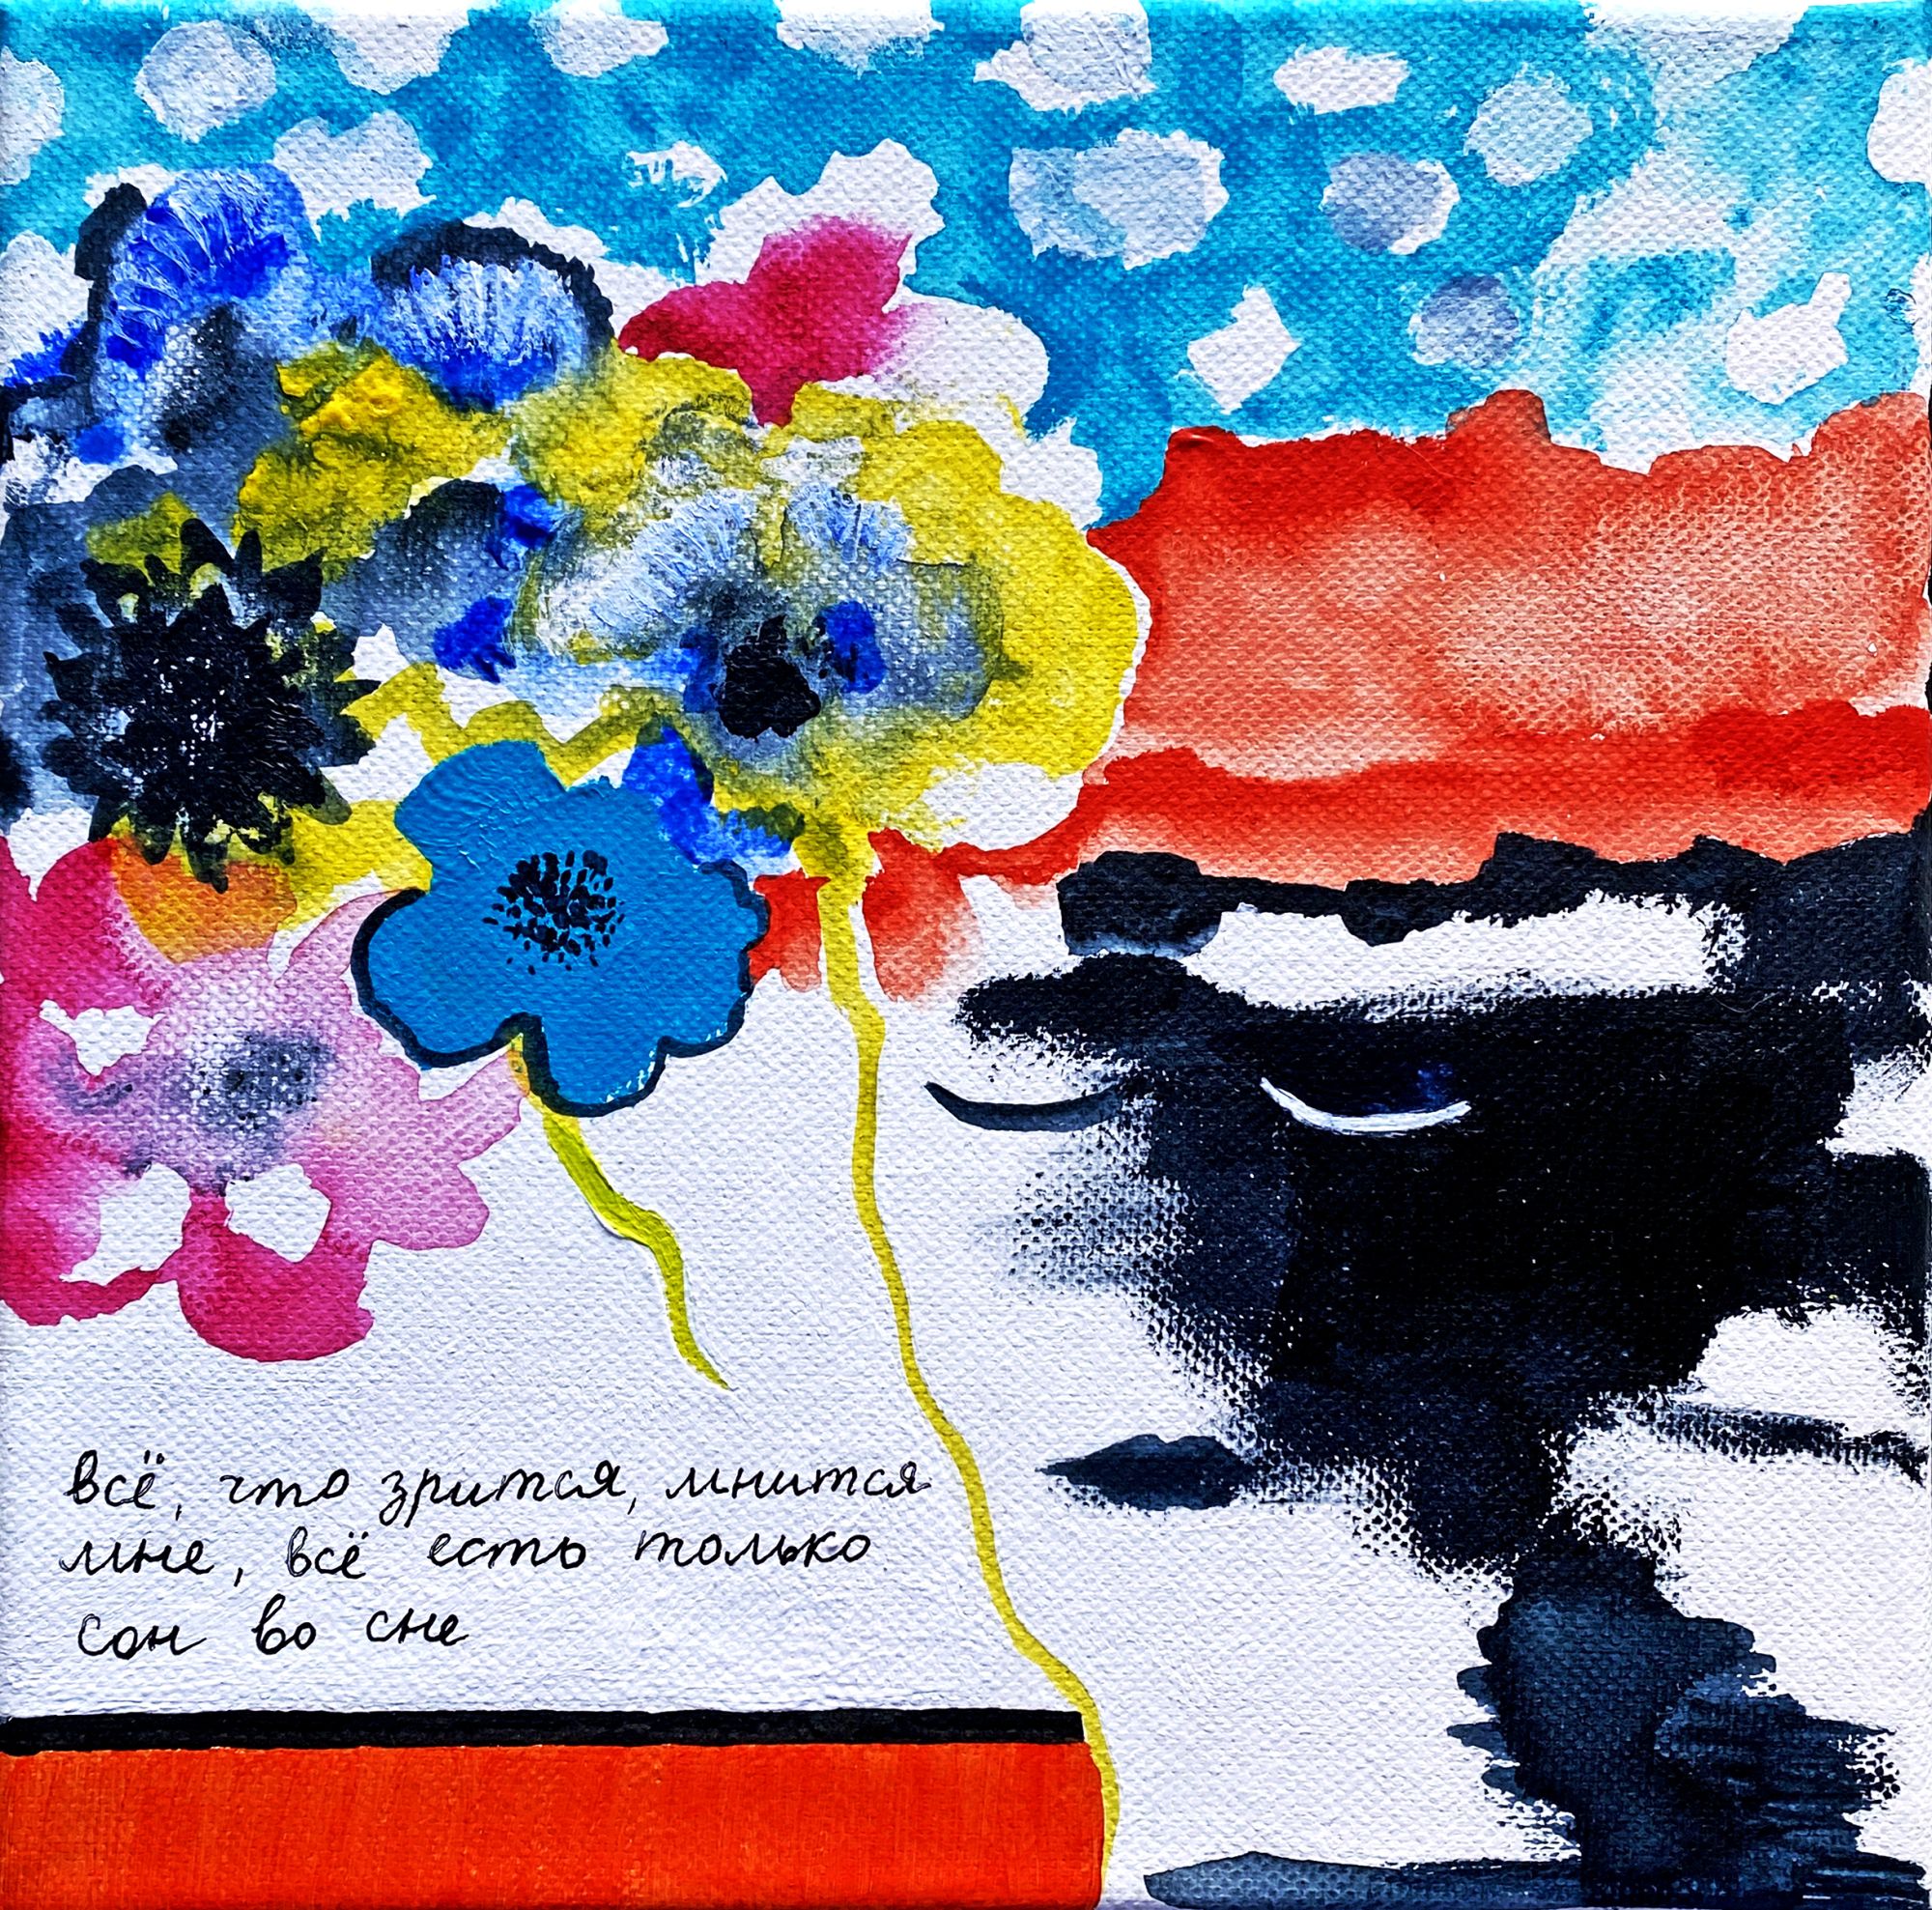 всё, что зрится, мнится
мне, всё есть только
сон во сне